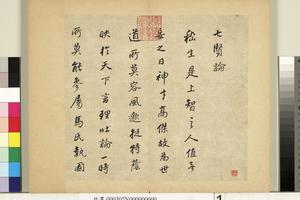 七賢論
嵇生是上智之人值無
妄之日神才高傑故為世
道所莫容風邈挺特蔭
映於天下言理吐論一時
所莫能參屬馬氏執國